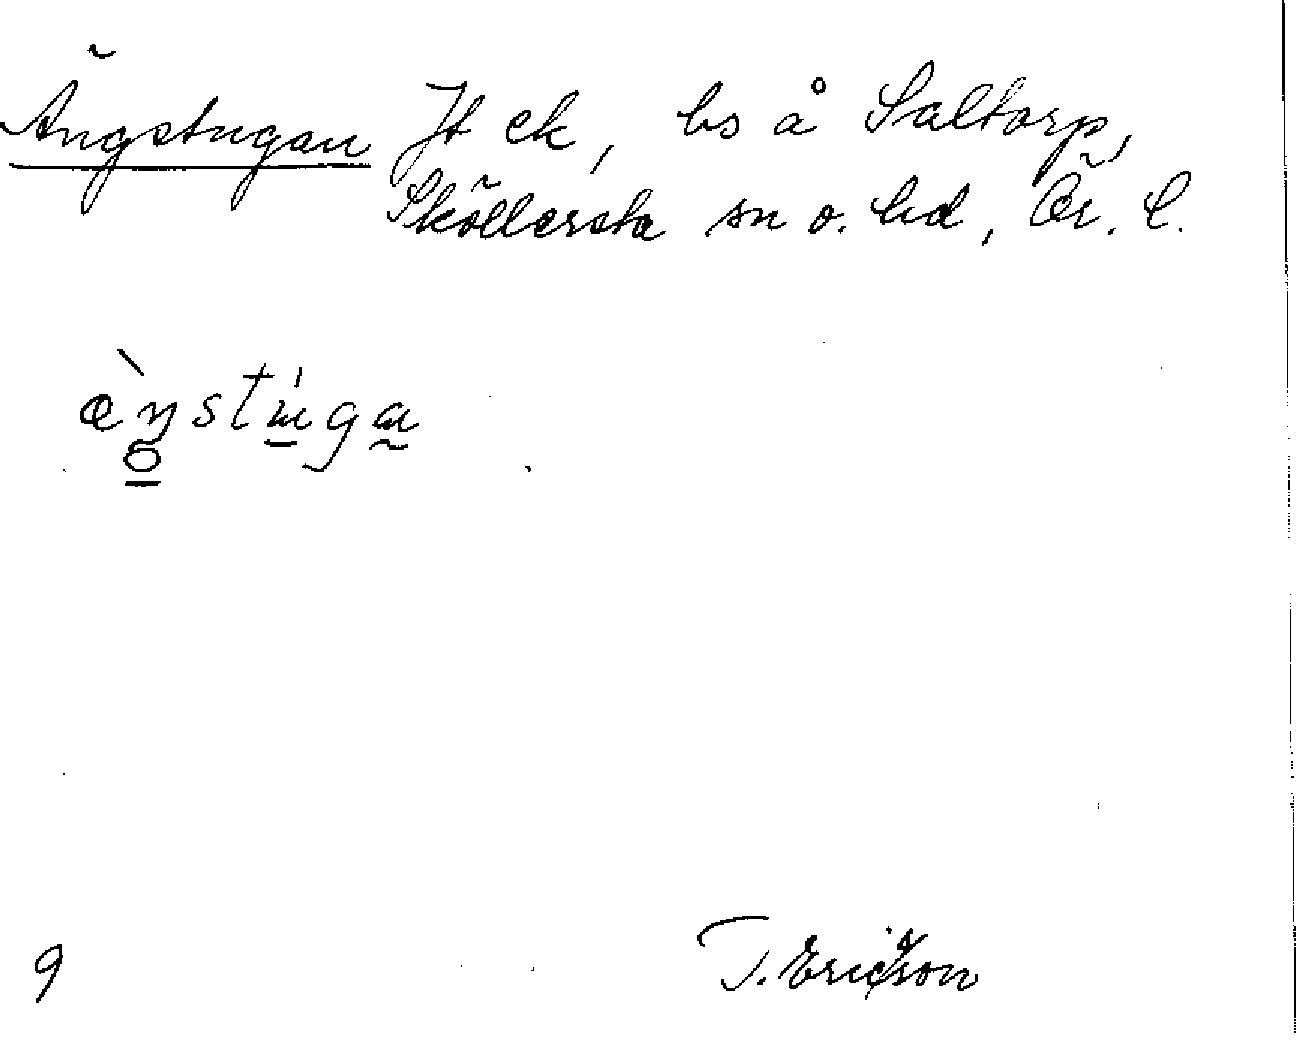 Ängstugan Jt ek, bs å Saltorp,
Sköllersta sn o. hd, Ör. l.
æ̀ŋstúga
9
T. Ericsson